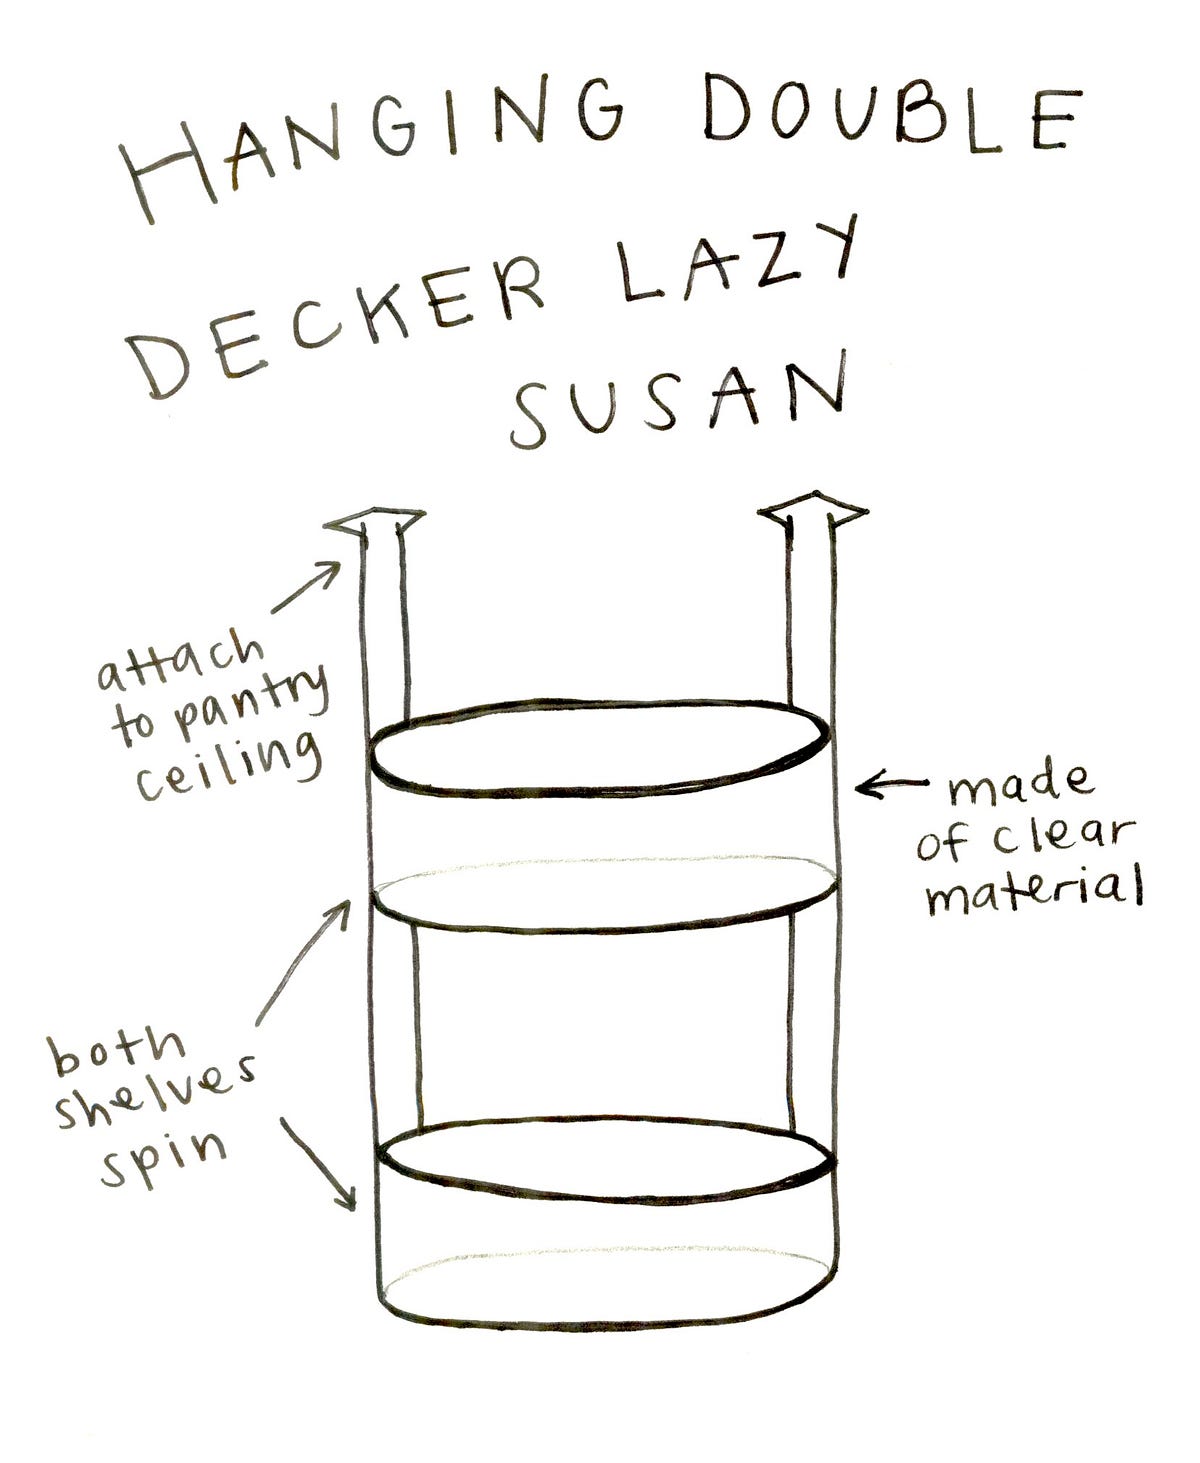 HANGING DOUBLE
DECKER LAZY
SUSAN
attach
to pantry
ceiling
made
of clear
material
both
shelves
spin